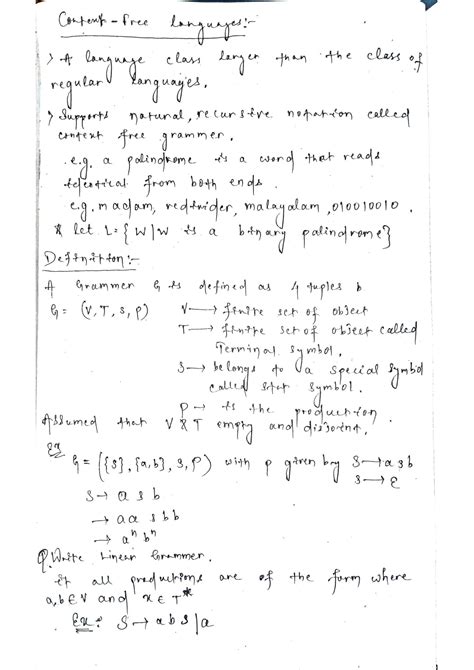 Context-free languages:-
> A language class larger than the class of
regular languages.
> Supports natural, recursive notation called
context free grammer.
e.g. a palindrome is a word that reads
identical from both ends.
e.g. madam, redivider, malayalam, 010010010.
& let L = {W|W is a binary palindrome}
Definition:-
A Grammer G is defined as 4 tuples
G = (V, T, S, P) V → finite set of object
T → finite set of object called
Terminal symbol.
S → belongs to a special symbol
called start symbol.
P → is the production.
Assumed that V & T empty and disjoint.
Ex
G = ({S}, {a,b}, S, P) with P given by S → a s b
S → ε
S → a s b
→ a a s b b
→ aⁿ bⁿ
Q. Write Linear Grammer.
if all productions are of the form where
a, b ∈ V and x ∈ T*
Ex: S → a b s | a